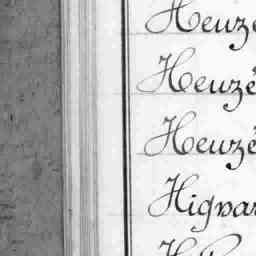 Heuzé
Heuzé
Heuzé
Hignar